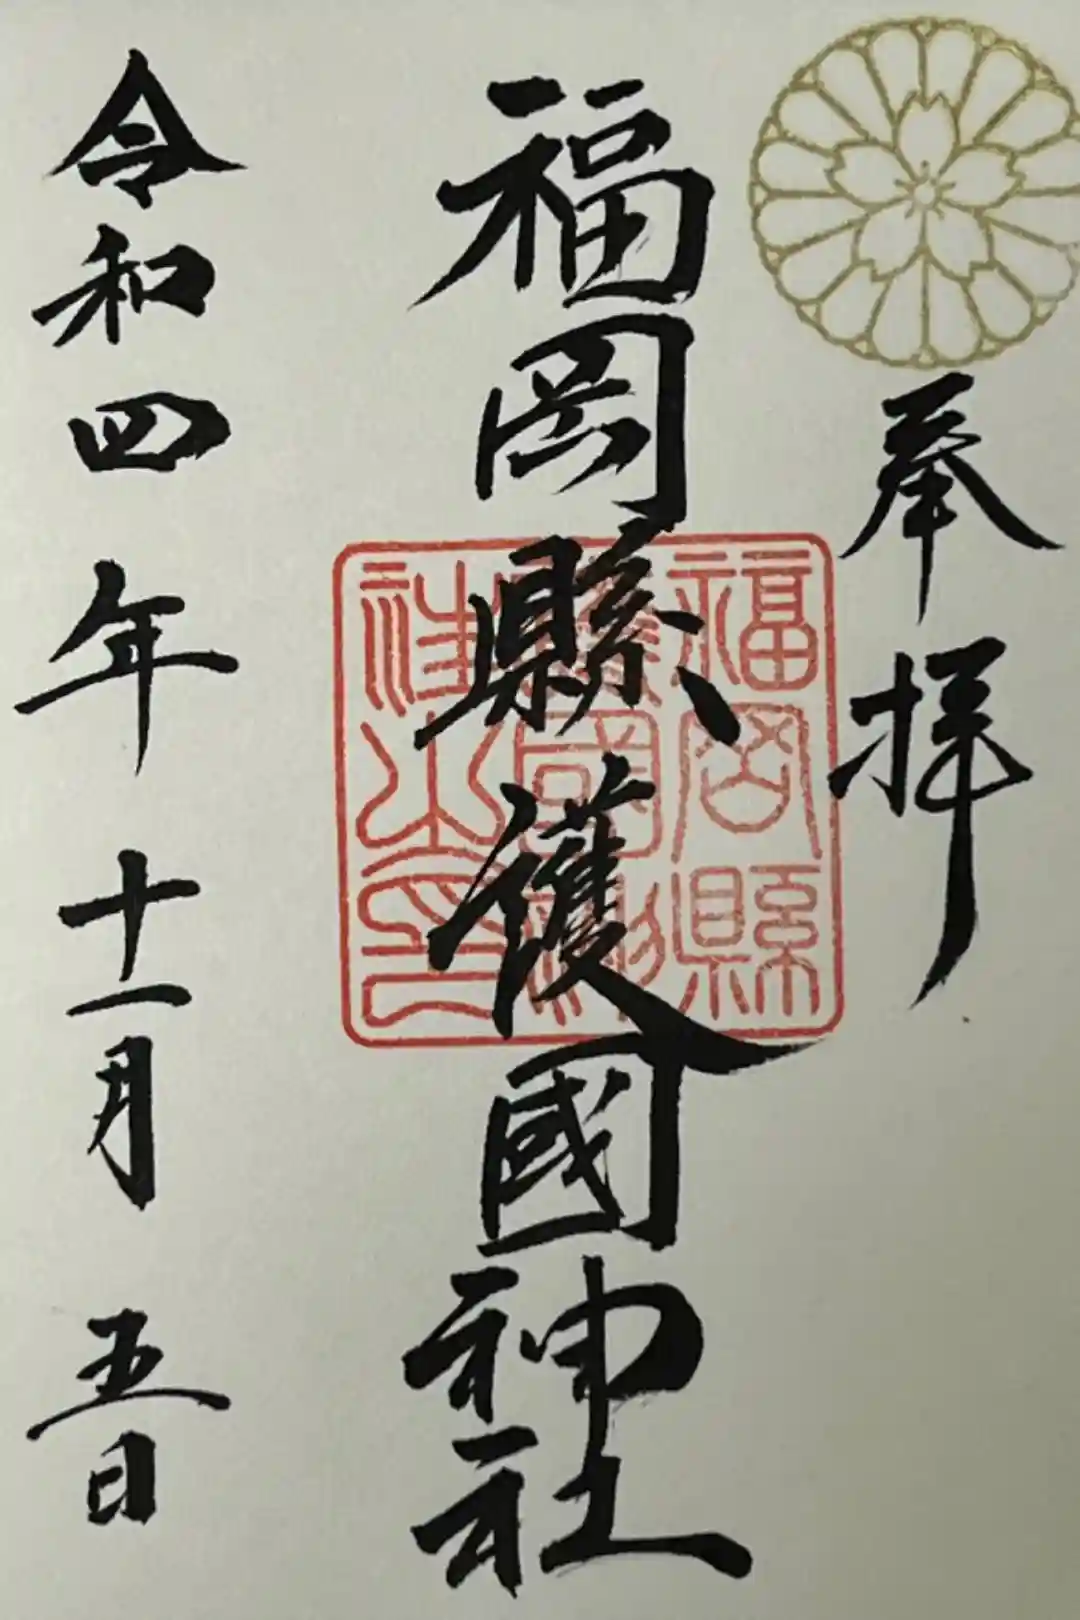 奉拝
福岡縣護國神社
福岡縣
護國神
社之印
令和四年十一月五日